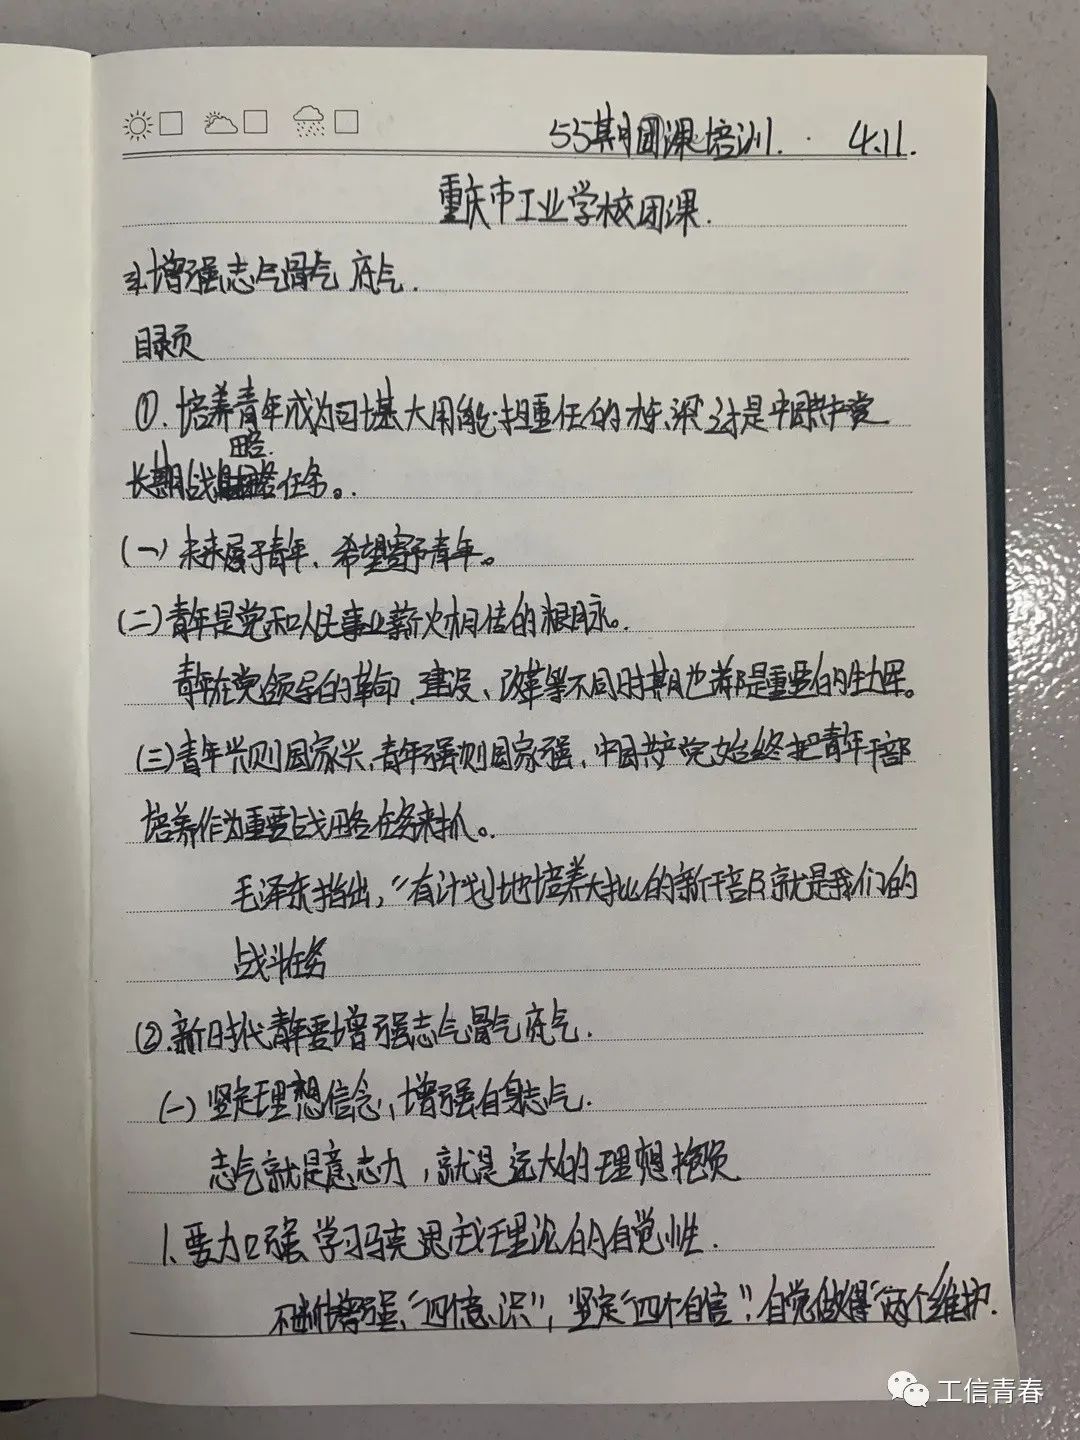 55期团课培训. 4.11.
重庆市工业学校团课.
增强志气骨气 底气.
目录页
①.培养青年成为可堪大用能担重任的栋梁之才是中国共产党
略.
长期战略任务。
(一)未来属于青年、希望寄予青年。
(二)青年是党和人民事业薪火相传的根脉。
青年在党领导的革命、建设、改革等不同时期也都是重要的生力军。
(三)青年兴则国家兴,青年强则国家强,中国共产党始终把青年干部
培养作为重要战略任务来抓。
毛泽东指出,“有计划地培养大批的新干部就是我们的
战斗任务
②.新时代青年要增强志气骨气底气.
(一)坚定理想信念,增强自身志气.
志气就是意志力,就是远大的理想抱负
1.要加强学习马克思主义理论的自觉性.
不断增强“四个意识”,坚定“四个自信”,自觉做得“两个维护.
工信青春